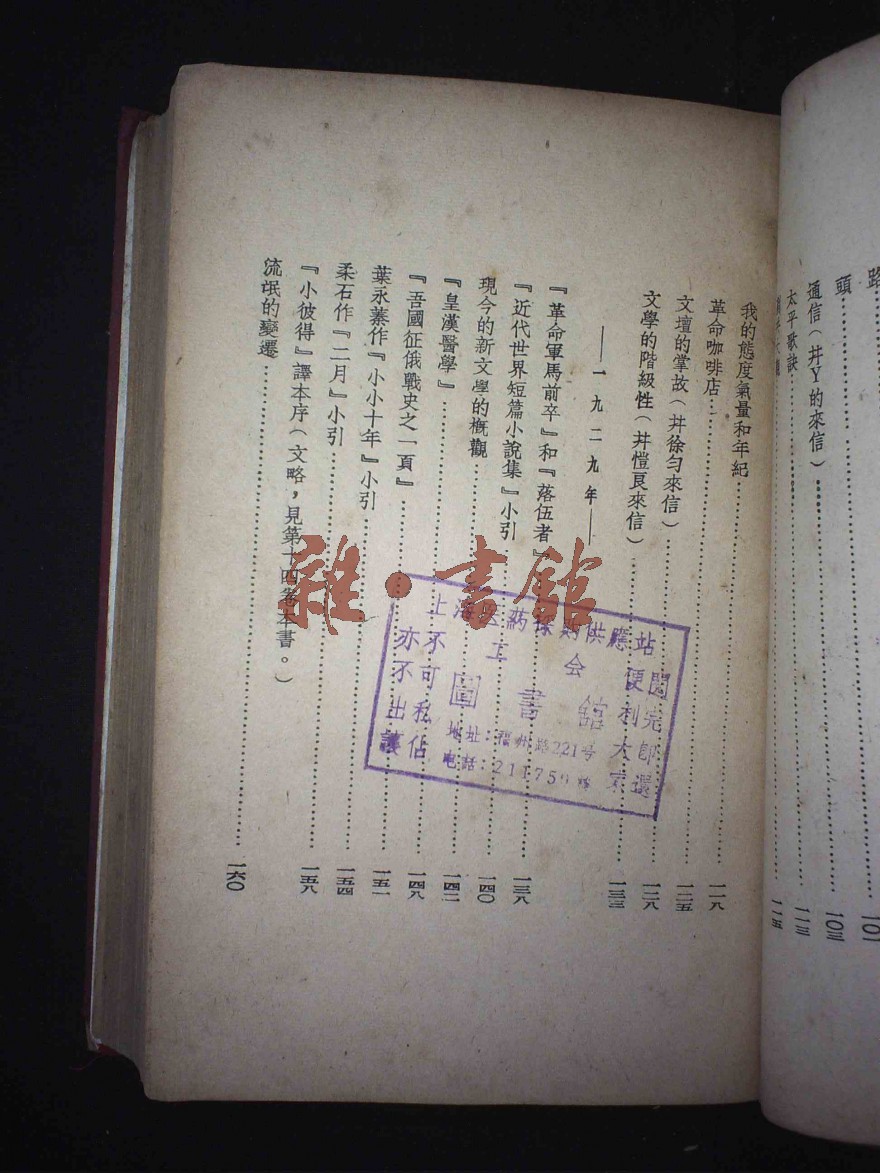 路 一〇一
頭 一〇三
通信(并Y的來信) 一一三
太平歌訣 一一五
我的態度氣量和年紀 一一八
革命咖啡店 一二五
文壇的掌故(并徐匀來信) 一二八
文學的階級性(并愷良來信) 一三三
——一九二九年——
『革命軍馬前卒』和『落伍者』 一三八
『近代世界短篇小說集』小引 一四〇
現今的新文學的概觀 一四二
『皇漢醫學』 一四八
『吾國征俄戰史之一頁』 一五一
葉永蓁作『小小十年』小引 一五四
柔石作『二月』小引 一五八
『小彼得』譯本序(文略,見第十四卷本書。)
流氓的變遷 一六〇
雜·書館
上海医葯採购供應站
工会
圖書館
地址:福州路221号
电話:211750
閱完即還
便利大家
不可私佔
亦不出讓